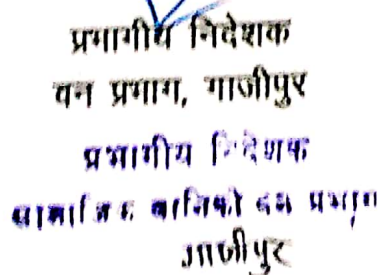 प्रभागीय निदेशक
वन प्रभाग, गाजीपुर
प्रभागीय निदेशक
सामाजिक वानिकी वन प्रभाग
गाजीपुर